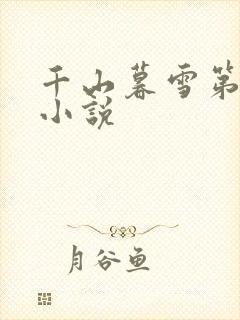 千山暮雪第
小说
月谷鱼